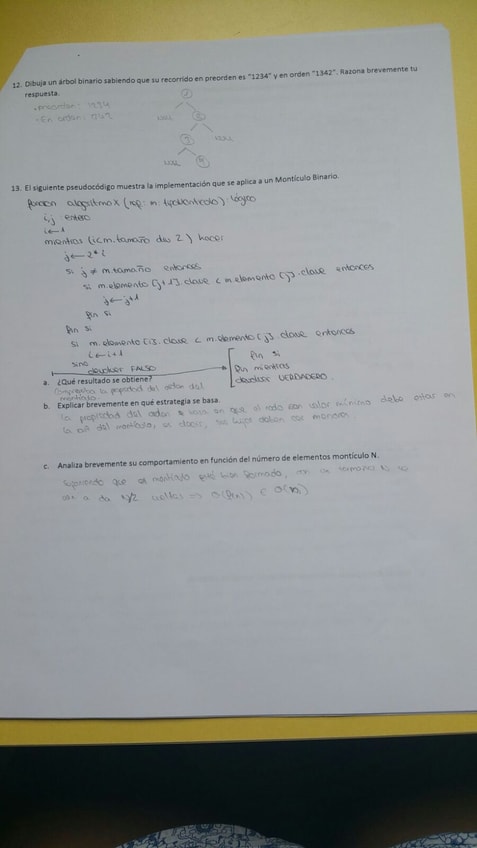 12. Dibuja un árbol binario sabiendo que su recorrido en preorden es "1234" y en orden "1342". Razona brevemente tu
respuesta.
• Preorden: 1234
• En orden: 1342
1
NULL 2
3 NULL
NULL 4
13. El siguiente pseudocódigo muestra la implementación que se aplica a un Montículo Binario.
funcion algoritmoX (ref m: tipoMonticulo): lógico
i, j: entero
i ← 1
mientras (i < m.tamaño div 2) hacer
j ← 2*i
si j ≠ m.tamaño entonces
si m.elemento [j+1].clave < m.elemento [j].clave entonces
j ← j+1
fin si
fin si
si m.elemento [i].clave < m.elemento [j].clave entonces
i ← i+1
sino
devolver FALSO
fin si
fin mientras
devolver VERDADERO.
a. ¿Qué resultado se obtiene?
Comprueba la propiedad del orden del
montículo
b. Explicar brevemente en qué estrategia se basa.
La propiedad del orden se basa en que el nodo con valor mínimo debe estar en
la raíz del montículo, es decir, sus hijos deben ser menores.
c. Analiza brevemente su comportamiento en función del número de elementos montículo N.
Suponiendo que el montículo está bien formado, con un tamaño N, se
van a dar N/2 vueltas ⇒